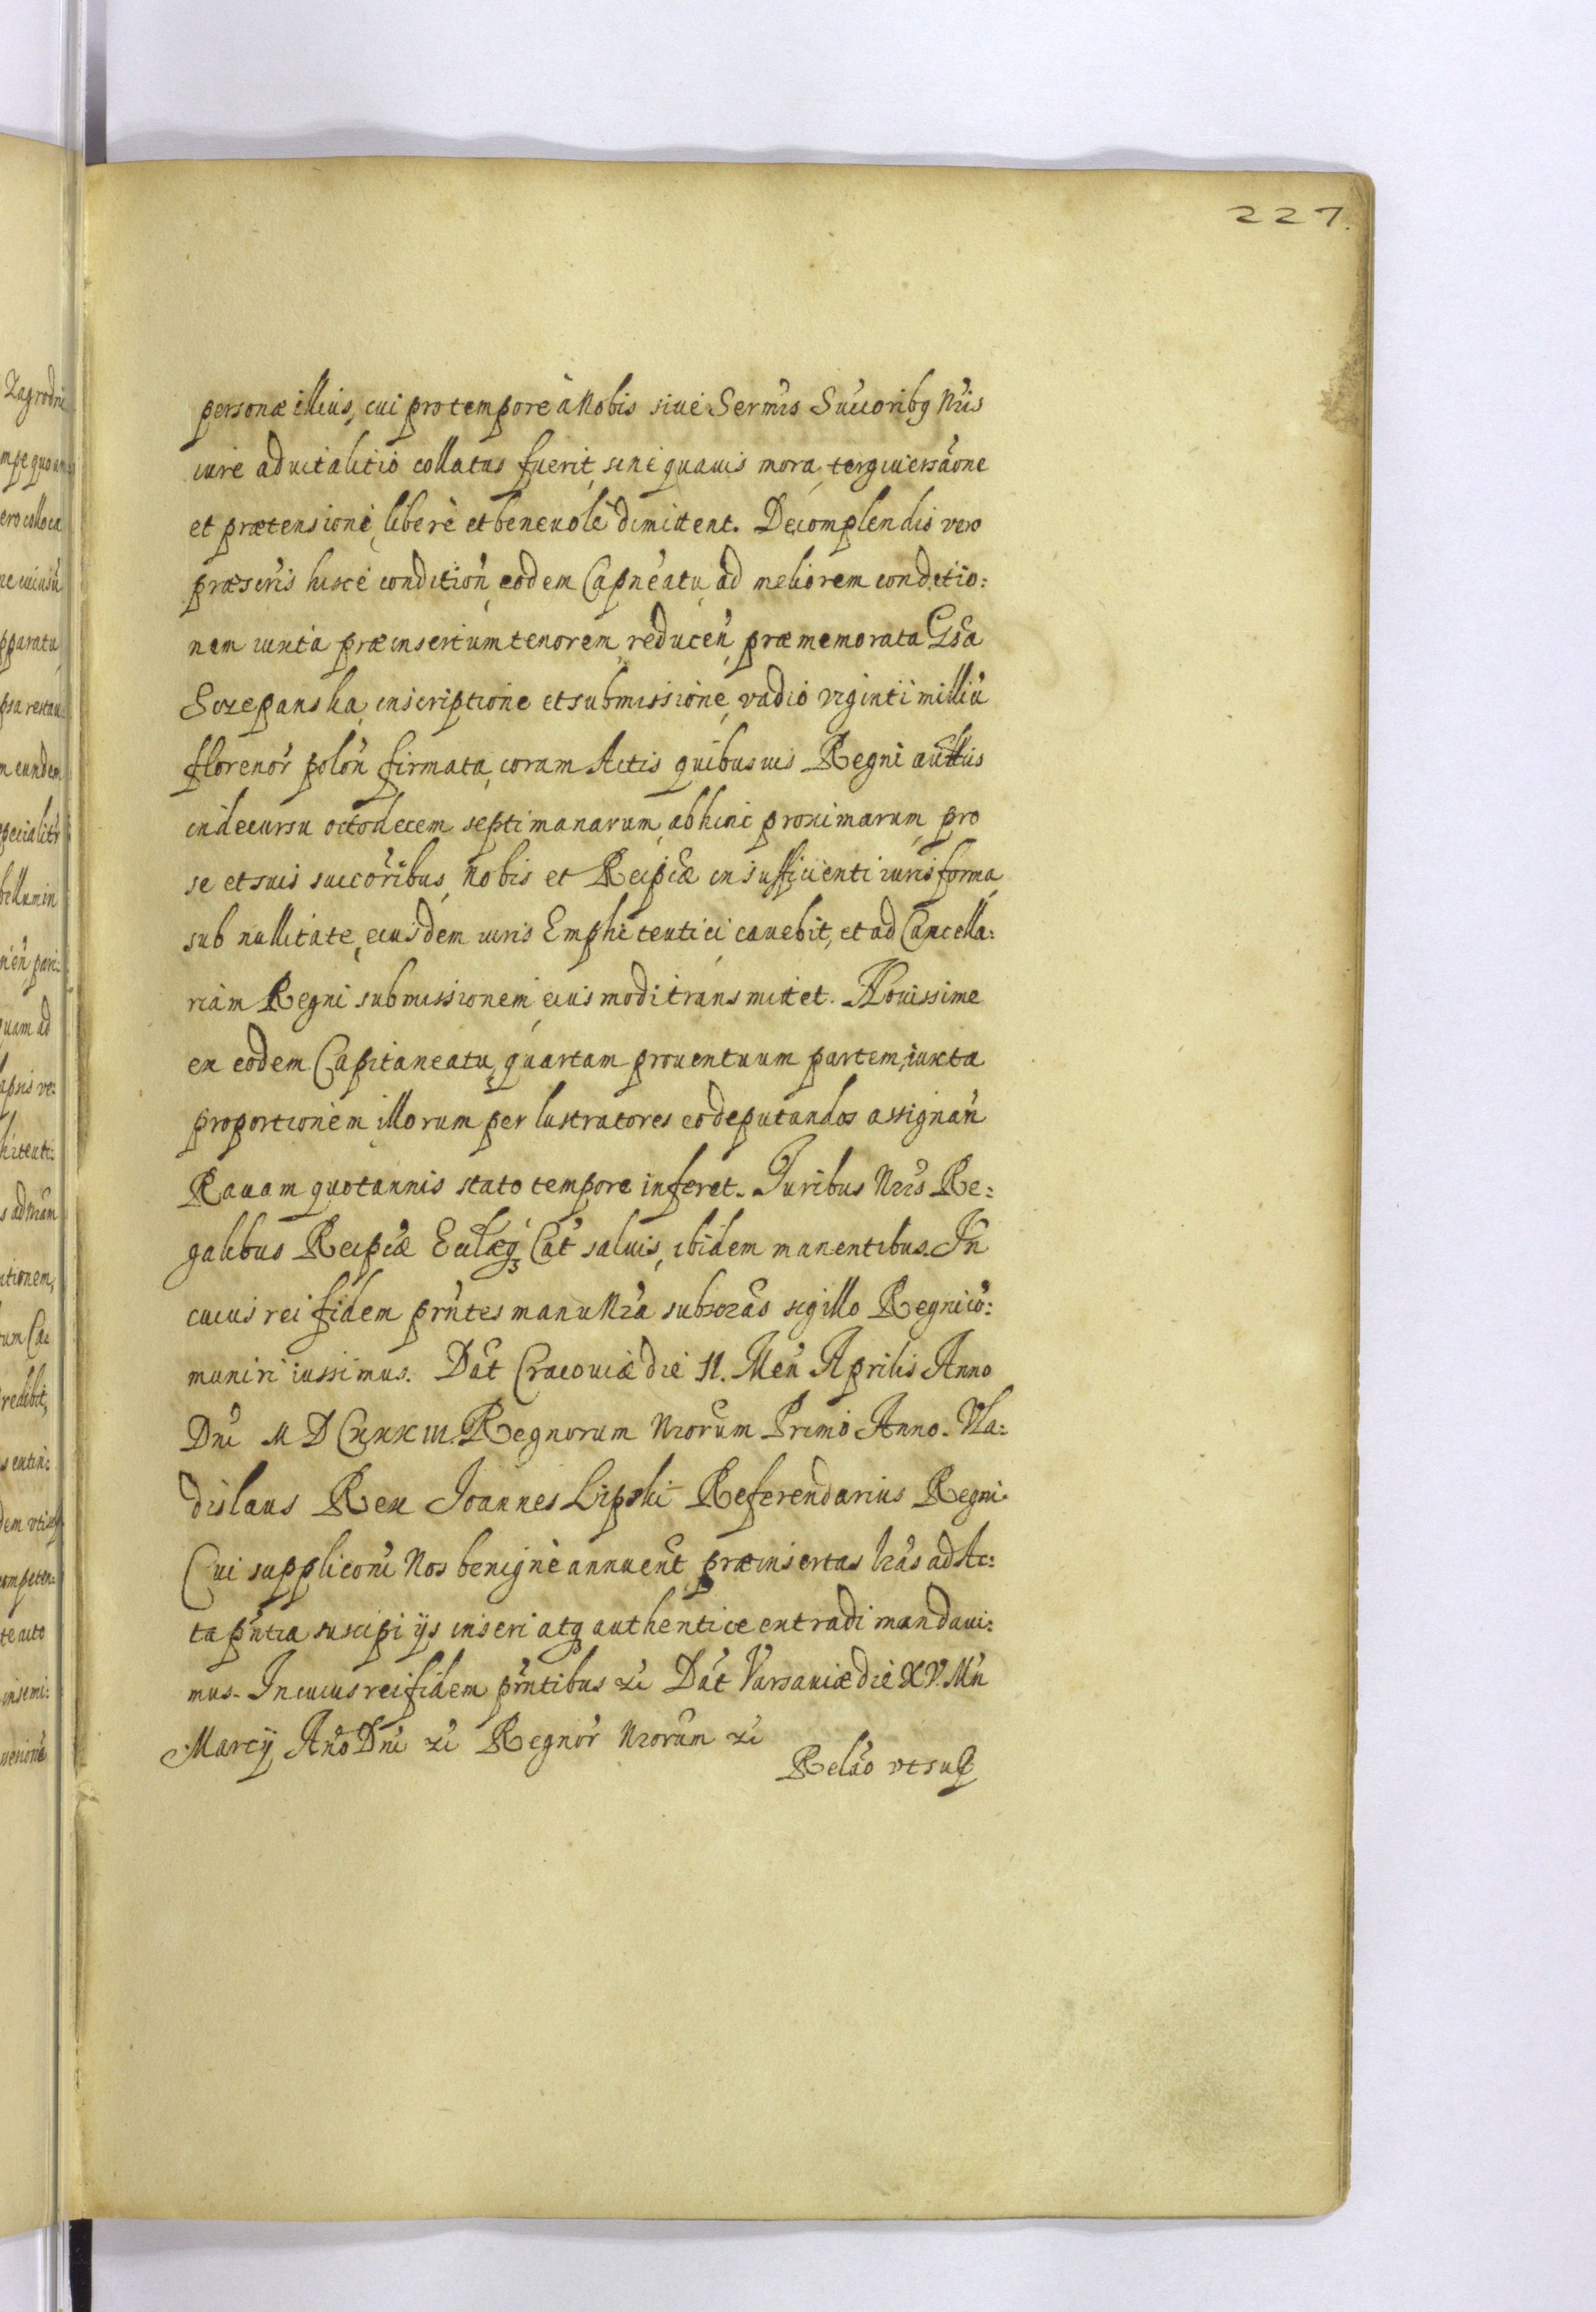 227.
personæ illius, cui pro tempore à Nobis siue Sermis Succoribq Nris
iure aduitalitio collatus fuerit, sine quauis mora, tergiuersaone
et prætensione, liberè et beneuolè dimittent. De complendis vero
præscris hisce condition eodem Capneatu, ad meliorem conditio:
nem iuxta præinsertum tenorem, reducen, præmemorata Gsa
Szczepanska, inscriptione et submissione, vadio viginti milliu
florenor polon firmata, coram Actis quibusuis Regni authis
in decursu octodecem septimanarum, abhinc proximarum, pro
se et suis succoribus, Nobis et Reipcæ in sufficienti iuris forma,
sub nullitate, eiusdem iuris Emphiteutici cauebit, et ad Cancella:
riam Regni submissionem eiusmodi transmittet. Nouissime
ex eodem Capitaneatu, quartam prouentuum partem, iuxta
proportionem illorum per lustratores eo deputandos assignan
Rauam quotannis stato tempore inferet. Iuribus Nris Re:
galibus Reipcæ Ecclæq Cat saluis, ibidem manentibus. In
cuius rei fidem prntes manu Nra subscras sigillo Regni co:
muniri iussimus. Dat Cracouiæ die 11. Men Aprilis Anno
Dni M D C XXX III. Regnorum Nrorum Primo Anno. Vla:
dislaus Rex Ioannes Lipski Referendarius Regni.
Cui suppliconi Nos benignè annuent præinsertas lras ad Ac:
ta pntia suscipi ijs inseri atq authentice extradi mandaui:
mus. In cuius rei fidem prntibus zc Dat Varsauiæ die XV. Mn
Marcij Ano Dni zc Regnor Nrorum zc
Relao vt sup
Zagrodni